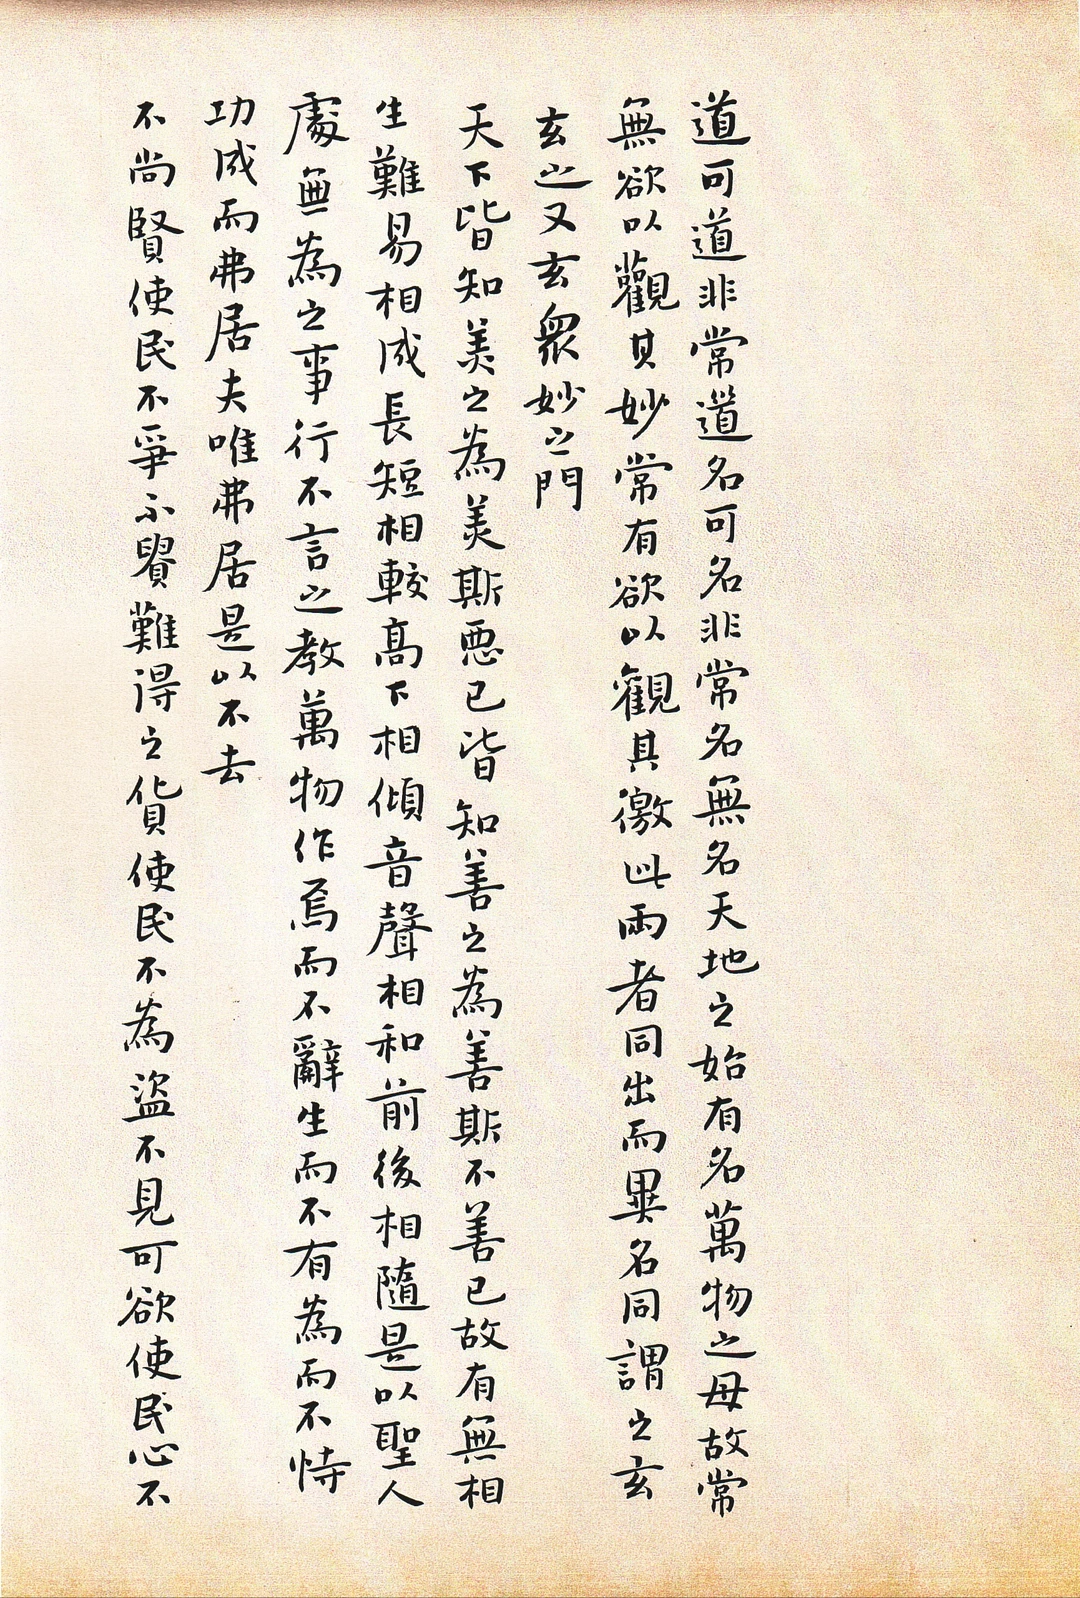 道可道非常道名可名非常名無名天地之始有名萬物之母故常
無欲以觀其妙常有欲以觀其徼此兩者同出而異名同謂之玄
玄之又玄衆妙之門
天下皆知美之為美斯惡已皆知善之為善斯不善已故有無相
生難易相成長短相較高下相傾音聲相和前後相隨是以聖人
處無為之事行不言之教萬物作焉而不辭生而不有為而不恃
功成而弗居夫唯弗居是以不去
不尚賢使民不爭不貴難得之貨使民不為盜不見可欲使民心不